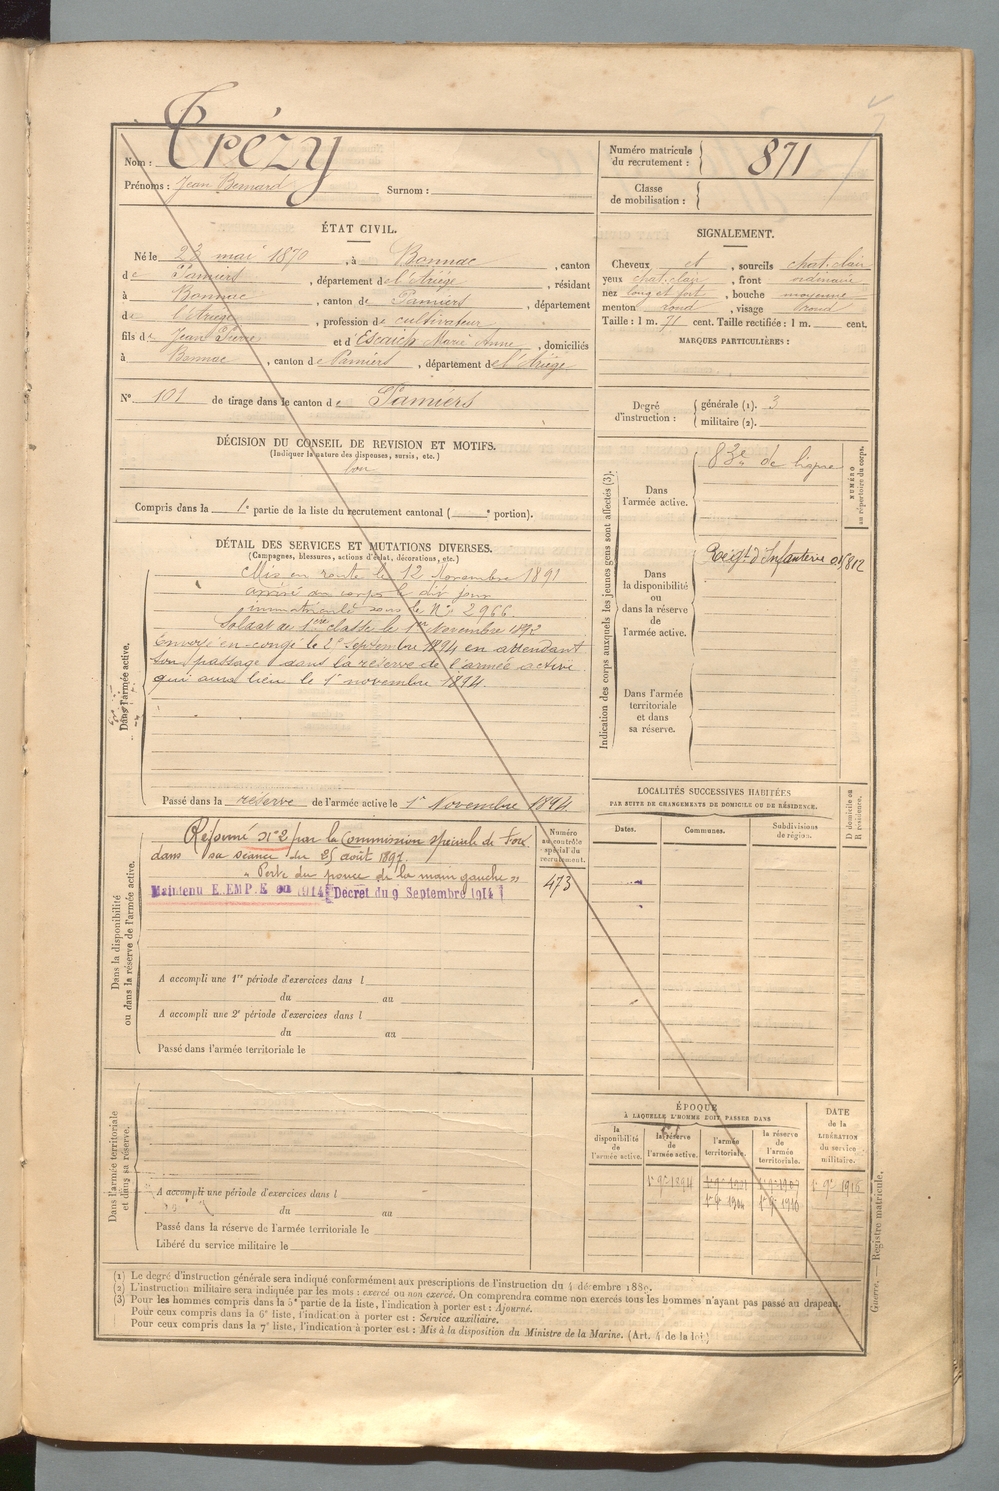 Nom : Trézy
Prénoms : Jean Bernard Surnom :
Numéro matricule du recrutement : 871
Classe de mobilisation :
ÉTAT CIVIL.
Né le 23 mai 1870, à Bonnac, canton
de Pamiers, département de l'Ariège, résidant
à Bonnac, canton de Pamiers, département
de l'Ariège, profession de cultivateur
fils de Jean Pierre et d'Escaich Marie Anne, domiciliés
à Bonnac, canton de Pamiers, département de l'Ariège
N° 101 de tirage dans le canton de Pamiers
DÉCISION DU CONSEIL DE REVISION ET MOTIFS.
(Indiquer la nature des dispenses, sursis, etc.)
bon
Compris dans la 1e partie de la liste du recrutement cantonal ( e portion).
SIGNALEMENT.
Cheveux et, sourcils chat. clair
yeux chat. clair, front ordinaire
nez long et fort, bouche moyenne
menton rond, visage
Taille : 1 m. 71 cent. Taille rectifiée : 1 m. cent.
MARQUES PARTICULIÈRES :
Degré d'instruction : générale (1). 3
militaire (2).
DÉTAIL DES SERVICES ET MUTATIONS DIVERSES.
(Campagnes, blessures, actions d'éclat, décorations, etc.)
Dans l'armée active.
Mis en route le 12 Novembre 1891
arrivé au corps le dit jour
immatriculé sous le N° 2966.
Soldat de 1ère classe le 1er Novembre 1892
Envoyé en congé le 2 Septembre 1894 en attendant
son passage dans la réserve de l'armée active
qui aura lieu le 1er novembre 1894.
Passé dans la réserve de l'armée active le 1er Novembre 1894.
Indication des corps auxquels les jeunes gens sont affectés (3).
NUMÉRO au répertoire du corps.
Dans l'armée active.
83e de ligne
Dans la disponibilité ou dans la réserve de l'armée active.
Régt. d'Infanterie
Dans l'armée territoriale et dans sa réserve.
LOCALITÉS SUCCESSIVES HABITÉES
PAR SUITE DE CHANGEMENTS DE DOMICILE OU DE RÉSIDENCE.
Dates.
Communes.
Subdivisions de région.
D domicile ou R résidence.
Dans la disponibilité ou dans la réserve de l'armée active.
Réformé N° 2 par la Commission spéciale de Foix
dans sa séance du 25 août 1897.
"Perte du pouce de la main gauche"
Maintenu E.EMP.E en 1914 Décret du 9 Septembre 1914
Numéro au contrôle spécial du recrutement.
473
A accompli une 1re période d'exercices dans l
du au
A accompli une 2e période d'exercices dans l
du au
Passé dans l'armée territoriale le
Dans l'armée territoriale et dans sa réserve.
A accompli une période d'exercices dans l
du au
Passé dans la réserve de l'armée territoriale le
Libéré du service militaire le
ÉPOQUE
À LAQUELLE L'HOMME DOIT PASSER DANS
la disponibilité de l'armée active.
la réserve de l'armée active.
l'armée territoriale.
la réserve de l'armée territoriale.
DATE de la LIBÉRATION du service militaire.
1er 9bre 1894
1er 9bre 1916
1er 9bre 1904 1er 9bre 1910
Guerre. — Registre matricule.
(1) Le degré d'instruction générale sera indiqué conformément aux prescriptions de l'instruction du 4 décembre 1889.
(2) L'instruction militaire sera indiquée par les mots : exercé ou non exercé. On comprendra comme non exercés tous les hommes n'ayant pas passé au drapeau.
(3) Pour les hommes compris dans la 5e partie de la liste, l'indication à porter est : Ajourné.
Pour ceux compris dans la 6e liste, l'indication à porter est : Service auxiliaire.
Pour ceux compris dans la 7e liste, l'indication à porter est : Mis à la disposition du Ministre de la Marine. (Art. 4 de la loi)